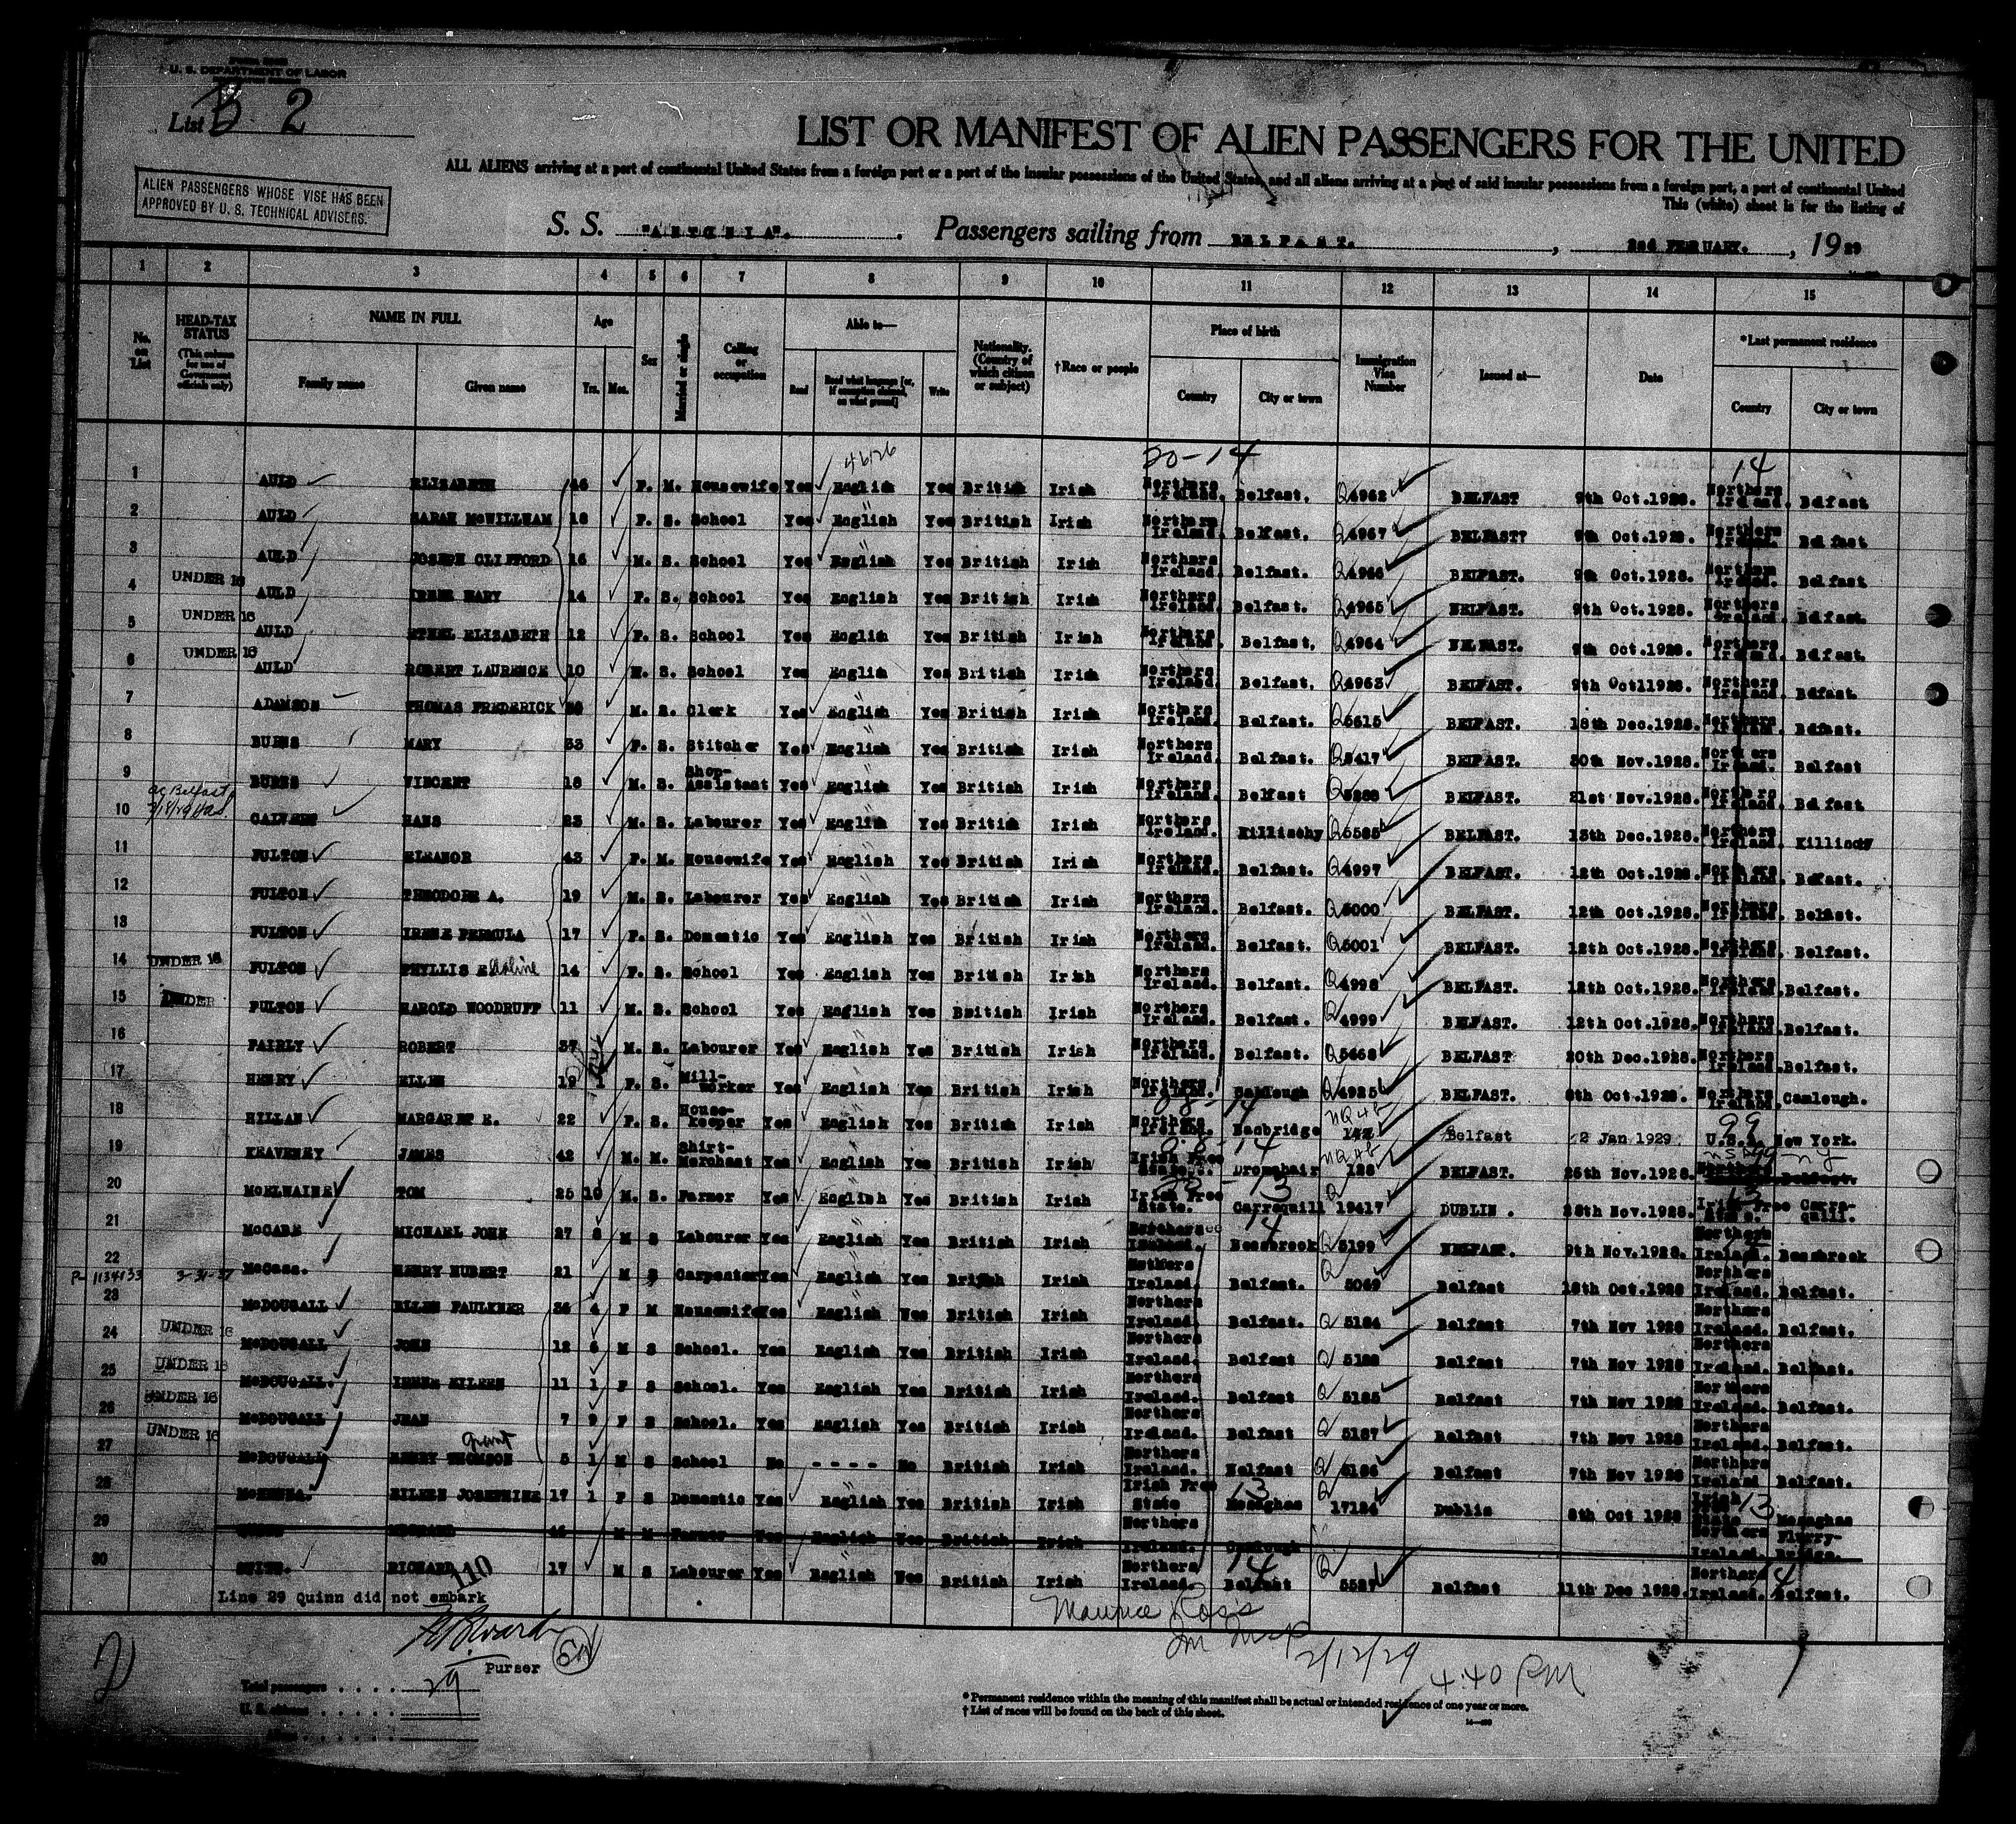 U. S. DEPARTMENT OF LABOR
List B 2
LIST OR MANIFEST OF ALIEN PASSENGERS FOR THE UNITED
ALL ALIENS arriving at a port of continental United States from a foreign port or a port of the insular possessions of the United States, and all aliens arriving at a port of said insular possessions from a foreign port, a port of continental United
This (white) sheet is for the listing of
ALIEN PASSENGERS WHOSE VISE HAS BEEN
APPROVED BY U. S. TECHNICAL ADVISERS.
S. S. "ANTONIA". Passengers sailing from BELFAST. , 2nd FEBRUARY. , 1929
1 2 3 4 5 6 7 8 9 10 11 12 13 14 15
No. on List
HEAD-TAX STATUS (This column for use of Government officials only)
NAME IN FULL
Family name Given name
Age
Yrs. Mos.
Sex
Married or single
Calling or occupation
Able to—
Read
Read what language [or, if exemption claimed, on what ground]
Write
Nationality. (Country of which citizen or subject)
†Race or people
Place of birth
Country City or town
Immigration Visa Number
Issued at—
Date
*Last permanent residence
Country City or town
46126 20-14 14
1 AULD ELIZABETH 46 F. M. Housewife Yes English Yes British Irish Northern Ireland. Belfast. Q4962 BELFAST 9th Oct.1928. Northern Ireland. Belfast
2 AULD SARAH McWILLIAM 18 F. S. School Yes English Yes British Irish Northern Ireland. Belfast. Q4967 BELFAST? 9th Oct.1928. Northern Ireland. Belfast
3 AULD JOSEPH CLIFFORD 16 M. S. School Yes English Yes British Irish Northern Ireland. Belfast. Q4966 BELFAST. 9th Oct.1928. Northern Ireland. Belfast
4 UNDER 16 AULD IRENE MARY 14 F. S. School Yes English Yes British Irish Northern Ireland. Belfast. Q4965 BELFAST. 9th Oct.1928. Northern Ireland. Belfast.
5 UNDER 16 AULD ETHEL ELIZABETH 12 F. S. School Yes English Yes British Irish Northern Ireland. Belfast. Q4964 BELFAST. 9th Oct.1928. Northern Ireland. Belfast.
6 UNDER 16 AULD ROBERT LAURENCE 10 M. S. School Yes English Yes British Irish Northern Ireland. Belfast. Q4963 BELFAST. 9th Oct11928. Northern Ireland. Belfast.
7 ADAMSON THOMAS FREDERICK M. S. Clerk Yes English Yes British Irish Northern Ireland. Belfast. Q5615 BELFAST. 18th Dec.1928. Northern Ireland. Belfast.
8 BURNS MARY 33 F. S. Stitcher Yes English Yes British Irish Northern Ireland. Belfast. Q5417 BELFAST. 30th Nov.1928. Northern Ireland. Belfast
9 BURNS VINCENT 18 M. S. Shop-Assistant Yes English Yes British Irish Northern Ireland. Belfast BELFAST. 21st Nov.1928. Northern Ireland. Belfast
10 CALVERT HANS 23 M. S. Labourer Yes English Yes British Irish Northern Ireland. Killinchy Q5585 BELFAST. 13th Dec.1928. Northern Ireland. Killinchy
11 FULTON ELEANOR 43 F. M. Housewife Yes English Yes British Irish Northern Ireland. Belfast. Q4997 BELFAST. 12th Oct.1928. Northern Ireland. Belfast.
12 FULTON THEODORE A. 19 M. S. Labourer Yes English Yes British Irish Northern Ireland. Belfast. Q5000 BELFAST. 12th Oct.1928. Northern Ireland. Belfast.
13 FULTON IRENE 17 F. S. Domestic Yes English Yes British Irish Northern Ireland. Belfast. Q5001 BELFAST. 12th Oct.1928. Northern Ireland. Belfast.
14 UNDER 16 FULTON PHYLLIS 14 F. S. School Yes English Yes British Irish Northern Ireland. Belfast. Q4998 BELFAST. 12th Oct.1928. Northern Ireland. Belfast.
15 UNDER FULTON HAROLD WOODRUFF 11 M. S. School Yes English Yes British Irish Northern Ireland. Belfast. Q4999 BELFAST. 12th Oct.1928. Northern Ireland. Belfast.
16 FAIRLY ROBERT 37 M. S. Labourer Yes English Yes British Irish Northern Ireland. Belfast. Q5668 BELFAST 20th Dec.1928. Northern Ireland. Belfast.
17 HENRY ELLEN 19 F. S. Mill-worker Yes English Yes British Irish Northern Ireland. Camlough Q4925 BELFAST. 8th Oct.1928. Northern Ireland. Camlough.
18 HILLAN MARGARET E. 22 F. S. House-keeper Yes English Yes British Irish Northern Ireland. Banbridge 142 Belfast 2 Jan 1929 U.S.A. New York.
19 KEAVENEY JAMES 42 M. M. Shirt-Merchant Yes English Yes British Irish Irish Free State. Dromahair 128 BELFAST. 26th Nov.1928. Northern Ireland. Belfast.
20 McELWAINE TOM 25 10 M. S. Farmer Yes English Yes British Irish Irish Free State. Carrequill 19417 DUBLIN . 28th Nov.1928. Irish Free State. Carre-quill.
21 McCABE MICHAEL JOHN 27 8 M S Labourer Yes English Yes British Irish Northern Ireland. Bessbrook Q5199 BELFAST. 9th Nov.1928. Northern Ireland. Bessbrook
P-1134133 3-31-37
22 McCann. HENRY HUBERT 21 M S Carpenter Yes English Yes British Irish Northern Ireland. Belfast. Q 5049 Belfast 18th Oct 1928 Northern Ireland. Belfast.
23 McDOUGALL EILEN FAULKNER 36 4 F M Housewife Yes English Yes British Irish Northern Ireland. Belfast. Q 5184 Belfast 7th Nov 1928 Northern Ireland. Belfast.
24 UNDER 16 McDOUGALL JOHN 12 6 M S School. Yes English Yes British Irish Northern Ireland. Belfast Q 5188 Belfast 7th Nov 1928 Northern Ireland. Belfast.
25 UNDER 16 McDOUGALL. IRENE EILEEN 11 1 F S School. Yes English Yes British Irish Northern Ireland. Belfast Q 5185 Belfast 7th Nov 1928 Northern Ireland. Belfast.
26 UNDER 16 McDOUGALL JEAN 7 9 F S School. Yes English Yes British Irish Northern Ireland. Belfast Q 5187 Belfast 7th Nov 1928 Northern Ireland. Belfast.
27 UNDER 16 McDOUGALL HENRY THOMSON Grant 5 1 M S School No - - - - No British Irish Northern Ireland. Belfast Q 5186 Belfast 7th Nov 1928 Northern Ireland Belfast.
28 McKENNA. EILEEN JOSEPHINE 17 1 F S Domestic Yes English Yes British Irish Irish Free State Monaghan 17124 Dublin 8th Oct 1928 Irish Free State Monaghan
29 QUINN M M Farmer Yes English Yes British Irish Northern Ireland. Camlough Northern Ireland.
30 RICHARD 17 M S Labourer Yes English Yes British Irish Northern Ireland. Belfast Q 5527 Belfast 11th Dec 1928. Northern Ireland. Belfast.
Line 29 Quinn did not embark
110
Maurice Ross
2/12/29 4:40 PM
Purser
Total passengers . . . . 29
U. S. citizens . . . . .
Aliens . . . . . .
* Permanent residence within the meaning of this manifest shall be actual or intended residence of one year or more.
† List of races will be found on the back of this sheet.